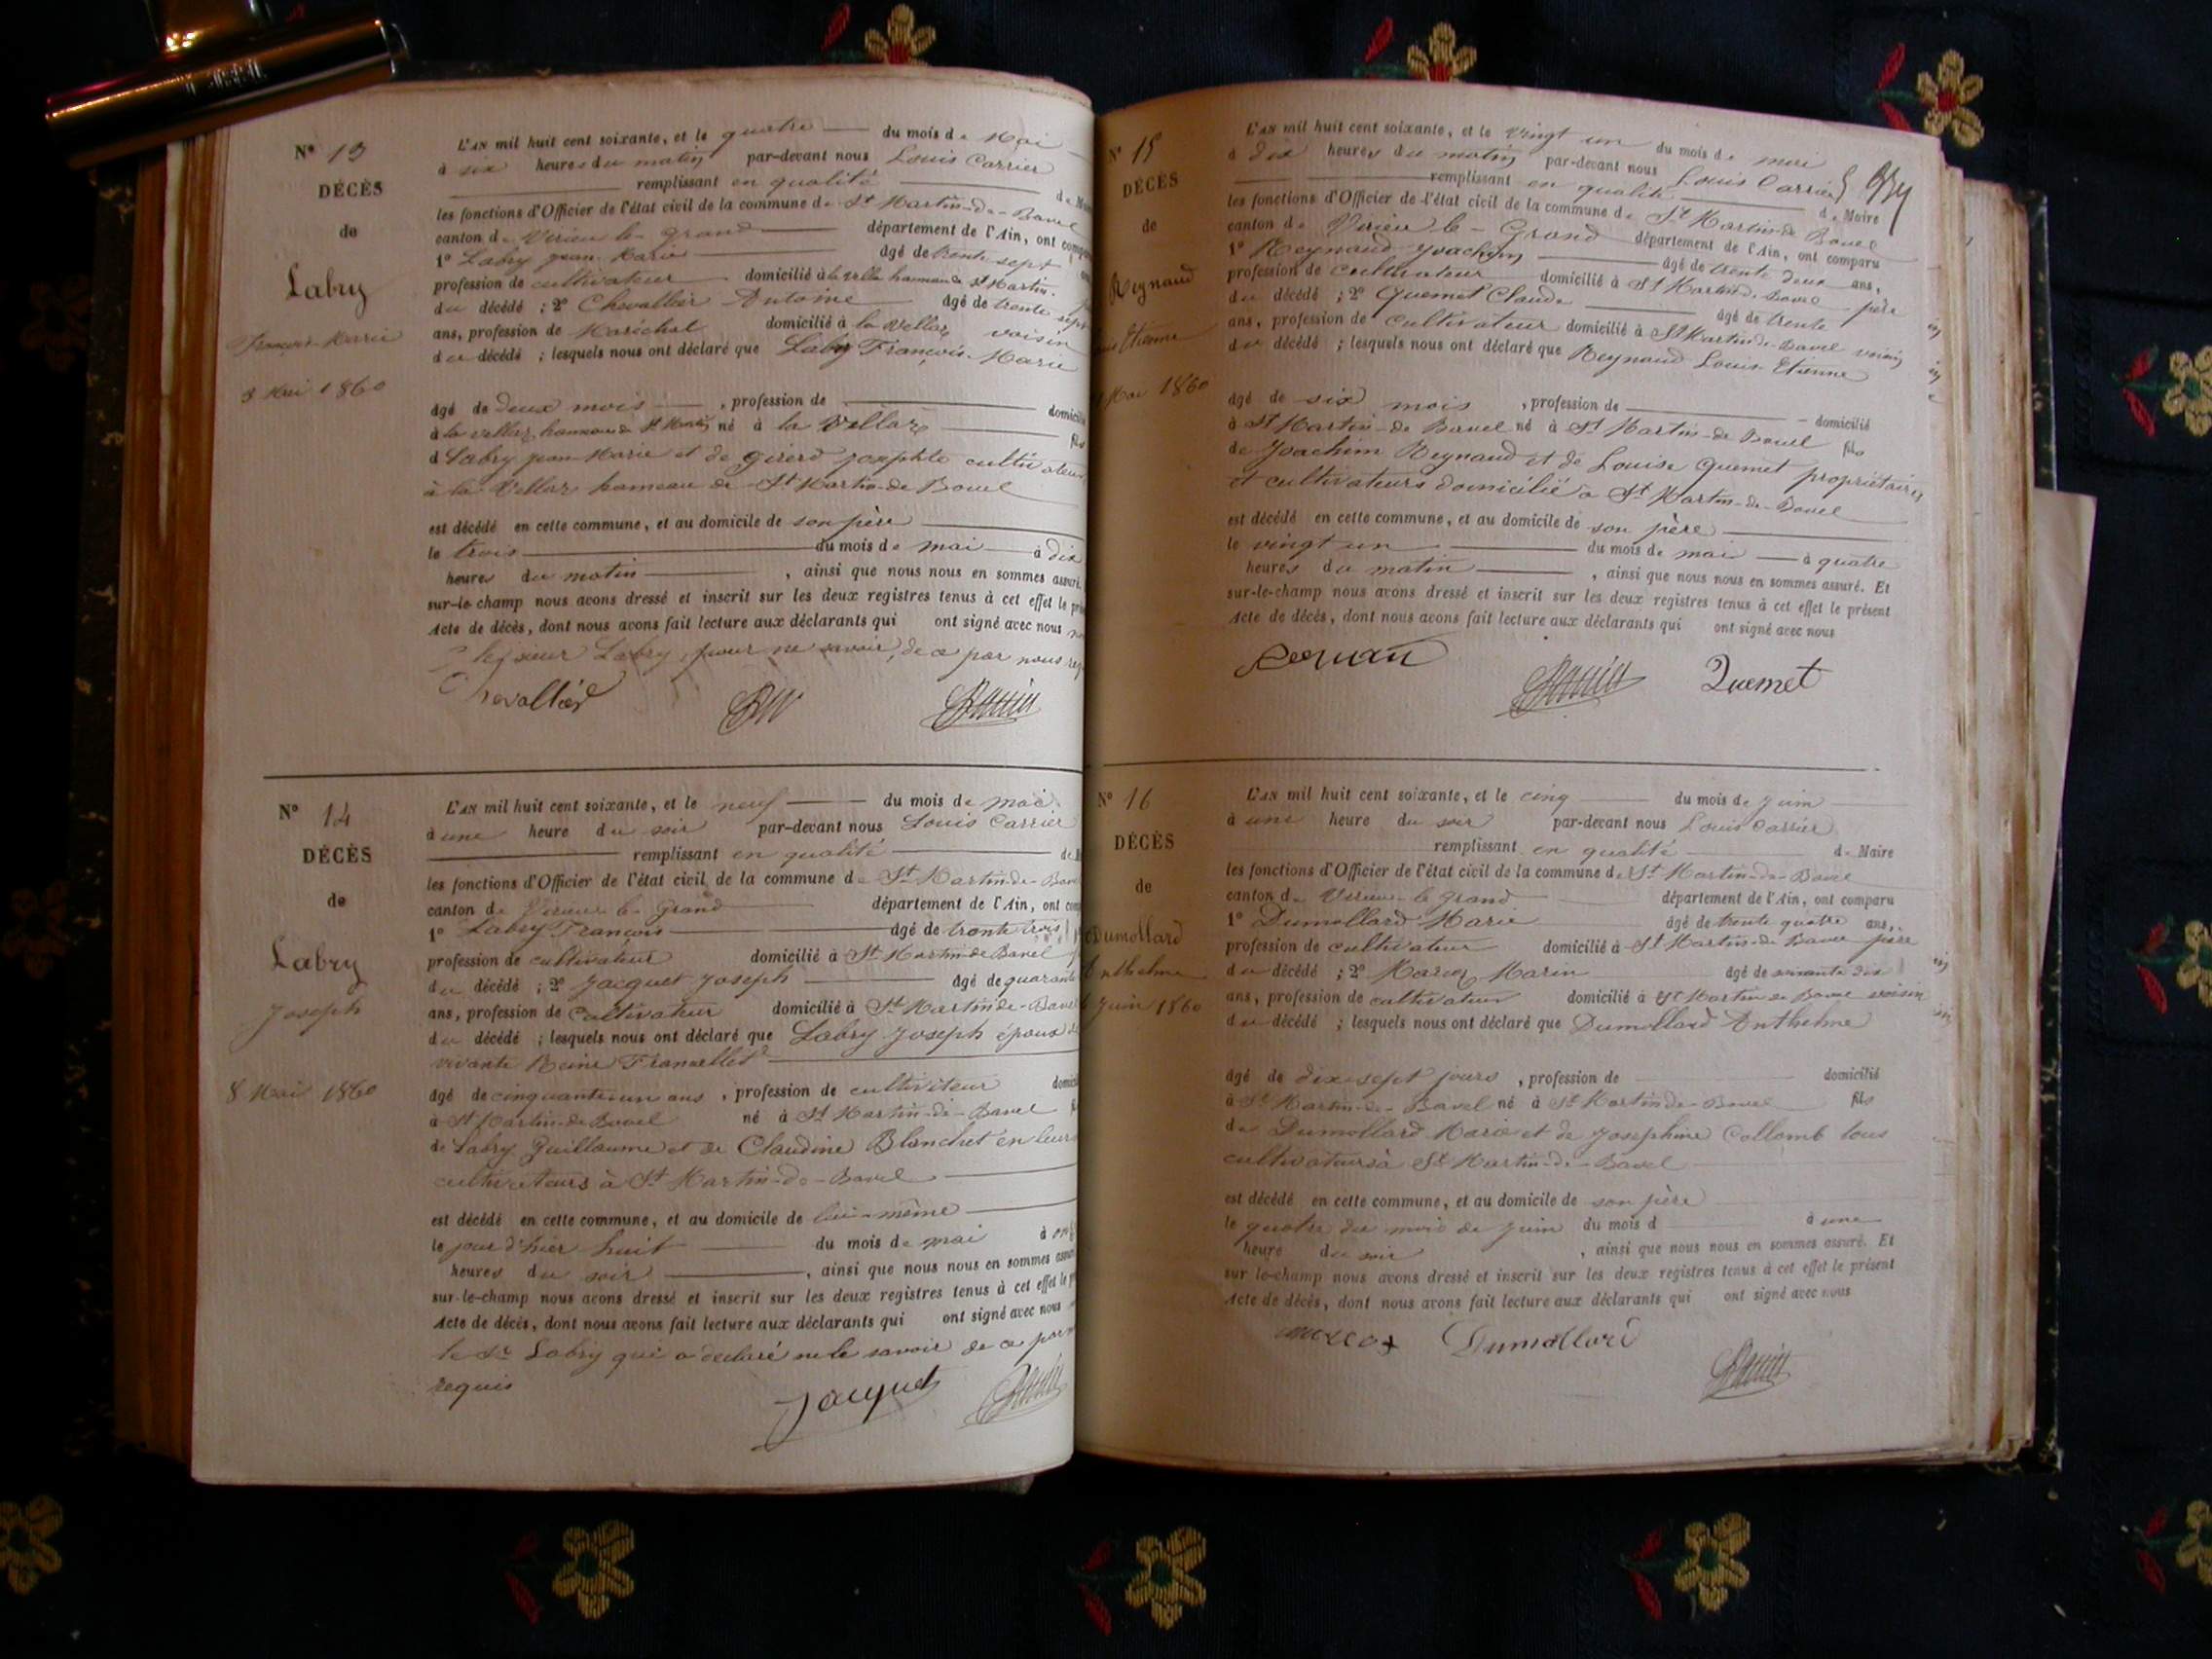 N° 13
DÉCÈS
de
Labry
François Marie
3 Mai 1860
L'AN mil huit cent soixante, et le quatre du mois de Mai
à six heures du matin par-devant nous Louis Carrier
remplissant en qualité de
les fonctions d'Officier de l'état civil de la commune de St Martin-de-Bavel
canton de Virieu le grand département de l'Ain, ont
1° Labry jean Marie âgé de trente sept
profession de cultivateur domicilié à la vellaz hameau de St Martin
du décédé ; 2° Chevallier Antoine âgé de trente sept
ans, profession de Maréchal domicilié à la Vellaz voisin
du décédé ; lesquels nous ont déclaré que Labry François Marie
âgé de deux mois , profession de
à la vellaz hameau de St Martin né à la Vellaz
d Labry jean Marie et de girerd josephte
à la Vellaz hameau de St Martin-de Bavel
est décédé en cette commune, et au domicile de son père
le trois du mois de mai à dix
heures du matin , ainsi que nous nous en sommes assuré.
sur-le-champ nous avons dressé et inscrit sur les deux registres tenus à cet effet le
Acte de décès, dont nous avons fait lecture aux déclarants qui ont signé avec nous
le sieur Labry pour ne savoir, de ce par nous
Chevallier
N° 14
DÉCÈS
de
Labry
Joseph
8 Mai 1860
L'AN mil huit cent soixante, et le neuf du mois de mai
à une heure du soir par-devant nous Louis Carrier
remplissant en qualité
les fonctions d'Officier de l'état civil de la commune de St Martin-de-Bavel
canton de Virieu le Grand département de l'Ain, ont
1° Labry François âgé de trente trois
profession de cultivateur domicilié à St Martin de Bavel
du décédé ; 2° Jacquet Joseph âgé de quarante
ans, profession de cultivateur domicilié à St Martin de-Bavel
du décédé ; lesquels nous ont déclaré que Labry Joseph époux
vivante Reine
âgé de cinquante un ans , profession de cultiviteur
à St Martin-de Bavel né à St Martin-de-Bavel
de Labry Guillaume et de Claudine Blanchet en leur
cultivateurs à St Martin-de-Bavel
est décédé en cette commune, et au domicile de lui-même
le jour d'hier huit du mois de mai à
heures du soir , ainsi que nous nous en sommes
sur-le-champ nous avons dressé et inscrit sur les deux registres tenus à cet effet le
Acte de décès, dont nous avons fait lecture aux déclarants qui ont signé avec nous
le sr Labry qui a déclaré ne le savoir de ce
requis
Jacquet
N° 15
DÉCÈS
de
Reynaud
Etienne
Mai 1860
L'AN mil huit cent soixante, et le vingt un du mois de mai
à dix heures du matin par-devant nous Louis Carrier
remplissant en qualité de Maire
les fonctions d'Officier de l'état civil de la commune de St Martin-de Bavel
canton de Virieu le-Grand département de l'Ain, ont comparu
1° Reynaud Joachim âgé de trente deux ans,
profession de cultivateur domicilié à St Martin-de Bavel père
du décédé ; 2° Quemet Claude âgé de trente
ans, profession de cultivateur domicilié à St Martin-de-Bavel voisin
du décédé ; lesquels nous ont déclaré que Reynaud Louis Etienne
âgé de six mois , profession de domicilié
à St Martin-de Bavel né à St Martin-de Bavel fils
de Joachim Reynaud et de Louise Quemet propriétaires
et cultivateurs domicilié à St Martin-de-Bavel
est décédé en cette commune, et au domicile de son père
le vingt un du mois de mai à quatre
heures du matin , ainsi que nous nous en sommes assuré. Et
sur-le-champ nous avons dressé et inscrit sur les deux registres tenus à cet effet le présent
Acte de décès, dont nous avons fait lecture aux déclarants qui ont signé avec nous
Quemet
N° 16
DÉCÈS
de
Dumollard
Anthelme
Juin 1860
L'AN mil huit cent soixante, et le cinq du mois de juin
à une heure du soir par-devant nous Louis Carrier
remplissant en qualité de Maire
les fonctions d'Officier de l'état civil de la commune de St Martin-de-Bavel
canton de Virieu le grand département de l'Ain, ont comparu
1° Dumollard Marie âgé de trente quatre ans,
profession de cultivateur domicilié à St Martin-de Bavel père
du décédé ; 2° Marin âgé de soixante dix
ans, profession de cultivateur domicilié à St Martin de Bavel voisin
du décédé ; lesquels nous ont déclaré que Dumollard Anthelme
âgé de dix-sept jours , profession de domicilié
à St Martin-de-Bavel né à St Martin de-Bavel fils
de Dumollard Marie et de Josephine Collomb tous
cultivateurs à St Martin-de-Bavel
est décédé en cette commune, et au domicile de son père
le quatre du mois de juin du mois d à une
heure du soir , ainsi que nous nous en sommes assuré. Et
sur le-champ nous avons dressé et inscrit sur les deux registres tenus à cet effet le présent
Acte de décès, dont nous avons fait lecture aux déclarants qui ont signé avec nous
Dumollard